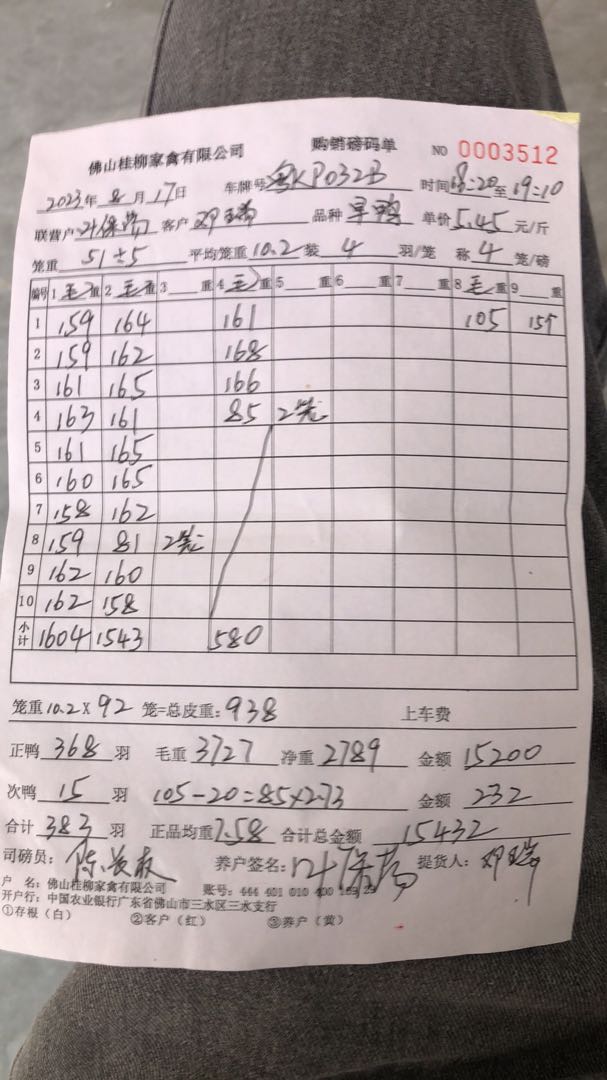 佛山桂柳家禽有限公司 购销磅码单 NO 0003512
2023年8月17日 车牌号 粤KP032B 时间18:20至19:10
联营户 叶保芳 客户 邓瑞 品种 旱鸭 单价5.45元/斤
笼重 51÷5 平均笼重10.2装 4 羽/笼 称 4 笼/磅
编号 1毛重 2毛重 3 重 4毛重 5 重 6 重 7 重 8毛重 9 重
1 159 164 161 105 157
2 159 162 168
3 161 165 166
4 163 161 85 2笼
5 161 165
6 160 165
7 158 162
8 159 81 2笼
9 162 160
10 162 158
小计 1604 1543 580
笼重10.2X92笼=总皮重:938 上车费
正鸭 368 羽 毛重 3727 净重 2789 金额 15200
次鸭 15 羽 105-20=85x2.73 金额 232
合计 383 羽 正品均重7.58 合计总金额 15432
司磅员: 陈 养户签名: 叶保芳 提货人: 邓瑞
户 名: 佛山桂柳家禽有限公司 账号: 444 401 010 400
开户行: 中国农业银行广东省佛山市三水区三水支行
①存根（白） ②客户（红） ③养户（黄）